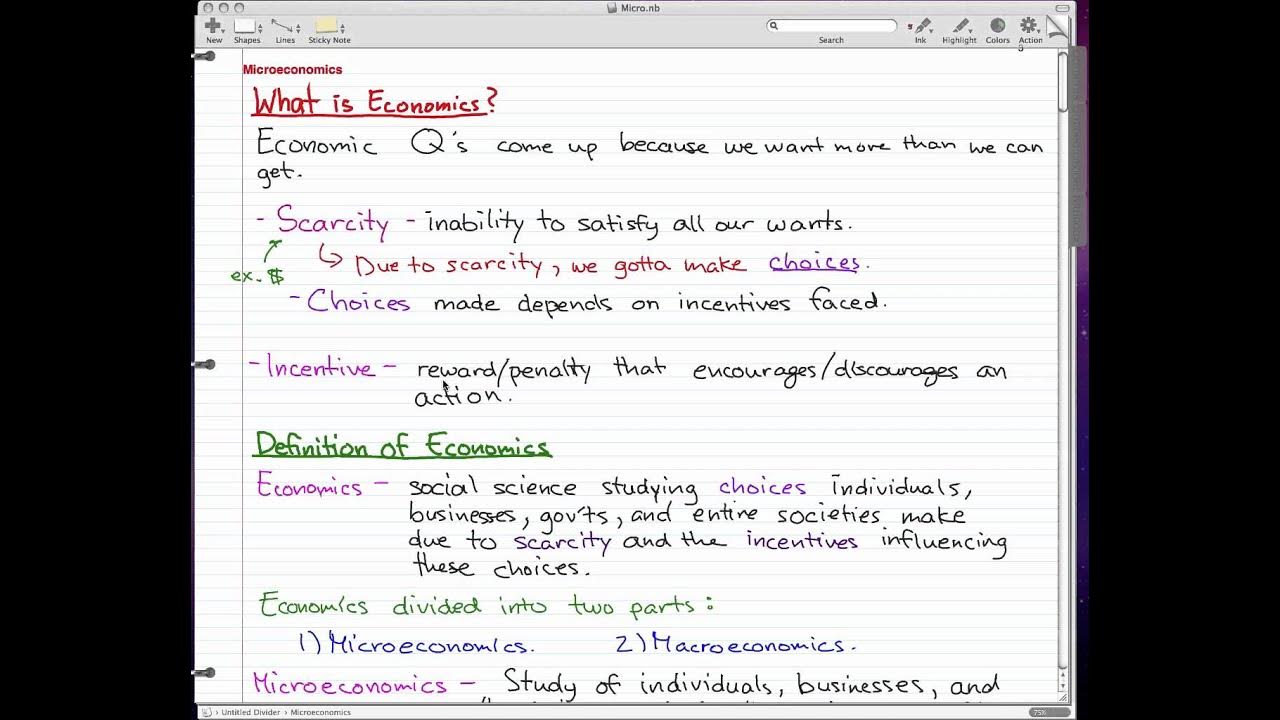 Micro.nb
New Shapes Lines Sticky Note Search Ink Highlight Colors Action
Microeconomics
What is Economics?
Economic Q's come up because we want more than we can
get.
- Scarcity - inability to satisfy all our wants.
↳ Due to scarcity, we gotta make choices.
ex. $
- Choices made depends on incentives faced.
- Incentive - reward/penalty that encourages/discourages an
action.
Definition of Economics
Economics - social science studying choices individuals,
businesses, gov'ts, and entire societies make
due to scarcity and the incentives influencing
these choices.
Economics divided into two parts:
1) Microeconomics. 2) Macroeconomics.
Microeconomics - Study of individuals, businesses, and
Untitled Divider › Microeconomics
75%